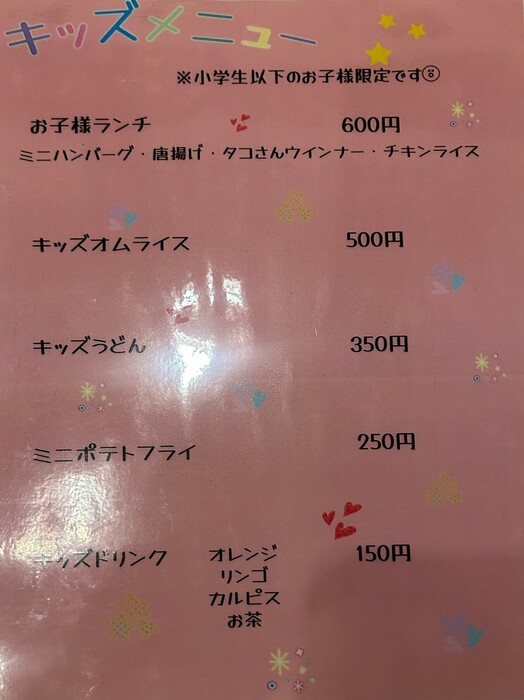 キッズメニュー
※小学生以下のお子様限定です
お子様ランチ 600円
ミニハンバーグ・唐揚げ・タコさんウインナー・チキンライス
キッズオムライス 500円
キッズうどん 350円
ミニポテトフライ 250円
キッズドリンク オレンジ 150円
リンゴ
カルピス
お茶